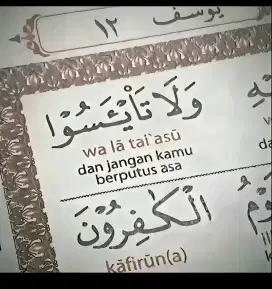 يوسف ١٢
وَلَا تَا۟يْـَٔسُوْا
wa lā tai`asū
dan jangan kamu
berputus asa
الْكٰفِرُوْنَ
kāfirūn(a)